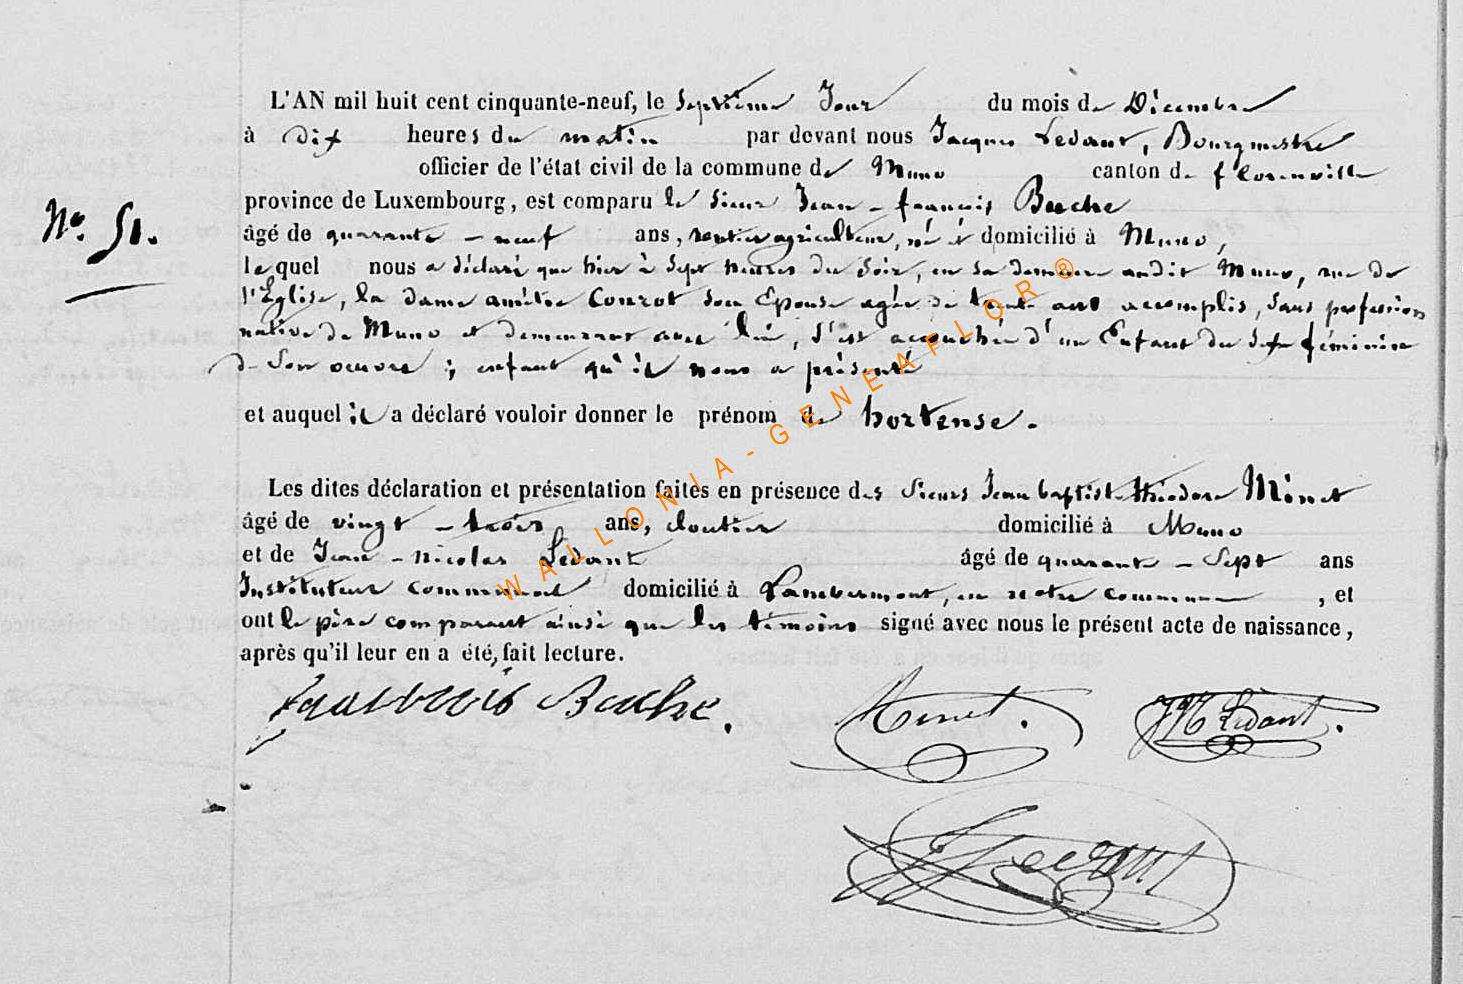 L'AN mil huit cent cinquante-neuf, le Septième Jour du mois de Décembre
à dix heures du matin par devant nous Jacques Ledant, Bourgmestre
officier de l'état civil de la commune de Muno canton de florenville
province de Luxembourg, est comparu le Sieur Jean-françois Buche
No. 51.
âgé de quarante-neuf ans, rentier agriculteur, né et domicilié à Muno,
lequel nous a déclaré que hier à Sept heures du Soir, en sa demeure audit Muno, rue de
l'Eglise, la dame Conrot Son Epouse agée de trente ans accomplis, Sans profession
native de Muno et demeurant avec lui, S'est accouchée d'un Enfant du Sexe féminin
de Son oeuvre ; enfant qu'il nous a présenté
et auquel il a déclaré vouloir donner le prénom de hortense.
Les dites déclaration et présentation faites en présence des Sieurs Jean baptiste théodore Minet
âgé de vingt-trois ans, cloutier domicilié à Muno
et de Jean-nicolas Ledant âgé de quarante-Sept ans
Instituteur communal domicilié à Lambermont, en notre commune, et
ont le père comparant ainsi que les témoins signé avec nous le présent acte de naissance,
après qu'il leur en a été, fait lecture.
Buche. Minet. JN Ledant.
J Ledant
WALLONIA-GENEAFLOR®